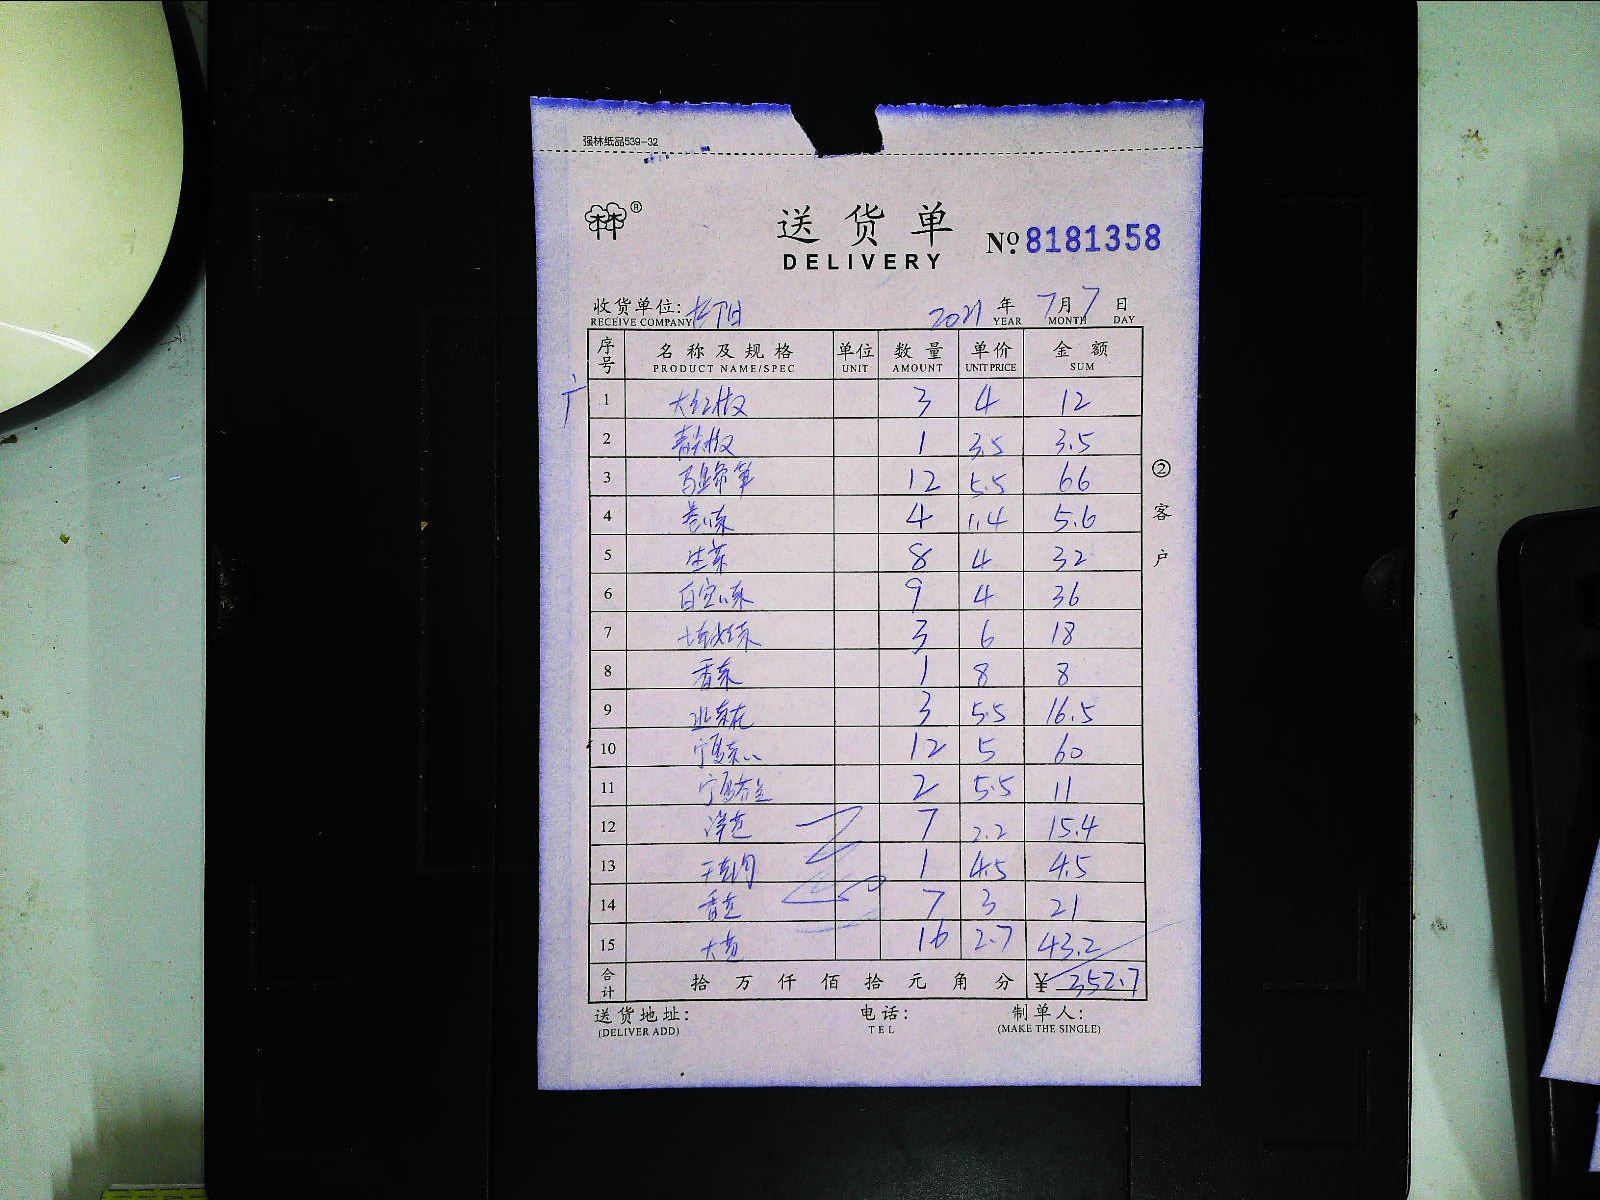 强林纸品539-32
林林®
送货单
DELIVERY
№ 8181358
收货单位: 2021年7月7日
RECEIVE COMPANY YEAR MONTH DAY
序号 名称及规格 单位 数量 单价 金额
PRODUCT NAME/SPEC UNIT AMOUNT UNIT PRICE SUM
1 大红椒 3 4 12
2 青尖椒 1 3.5 3.5
3 12 5.5 66
4 4 1.4 5.6
5 生菜 8 4 32
6 9 4 36
7 3 6 18
8 香菜 1 8 8
9 3 5.5 16.5
10 12 5 60
11 2 5.5 11
12 7 2.2 15.4
13 1 4.5 4.5
14 7 3 21
15 16 2.7 43.2
合计 拾万仟佰拾元角分 ¥ 352.7
送货地址: 电话: 制单人:
(DELIVER ADD) TEL (MAKE THE SINGLE)
②客户